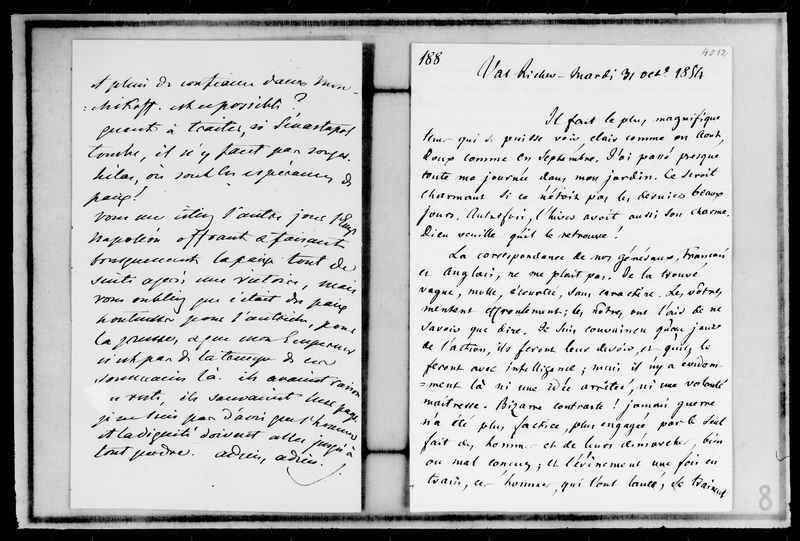 et plein de confiance dans Men-
-chikoff. est-ce possible?
quant à traiter, si Sévastopol
tombe, il n'y faut pas songer.
hélas, où sont les espérances de
paix!
vous me citez l'autre jour l'Emp.
Napoléon offrant & faisant
brusquement la paix tout de
suite après une victoire, mais
vous oubliez que c'était des paix
honteuses pour l'autriche, pour
la prusse, & que mon Empereur
n'est pas de la trempe de ces
souverains là. ils avaient raison
du reste, ils sauvaient leur pays.
je ne suis pas d'avis que l'honneur
et la dignité doivent aller jusqu'à
tout perdre. adieu, adieu.
188
4012
Val Richer - Mardi 31 octe 1854
Il fait le plus magnifique
tems qui se puisse voir, clair comme en Août,
doux comme en Septembre. J'ai passé presque
toute ma journée dans mon jardin. Ce seroit
charmant si ce n'étoit pas les derniers beaux
jours. Autrefois, l'hiver avoit aussi son charme.
Dieu veuille qu'il le retrouve!
La correspondance de nos généraux, Français
et Anglais, ne me plait pas. Je la trouve
vague, molle, écourtée, sans caractère. Les vôtres
mentent effrontément; les nôtres ont l'air de ne
savoir que dire. Je suis convaincu qu'au jour
de l'action, ils feront leur devoir, et qu'ils le
feront avec intelligence; mais il n'y a évidem-
-ment là ni une idée arrêtée, ni une volonté
maitresse. Bizarre contraste! jamais guerre
n'a été plus factice, plus engagée par le seul
fait des hommes et de leurs démarches, bien
ou mal conçues; et l'événement une fois en
train, ces hommes, qui l'ont lancé, se trainent
8